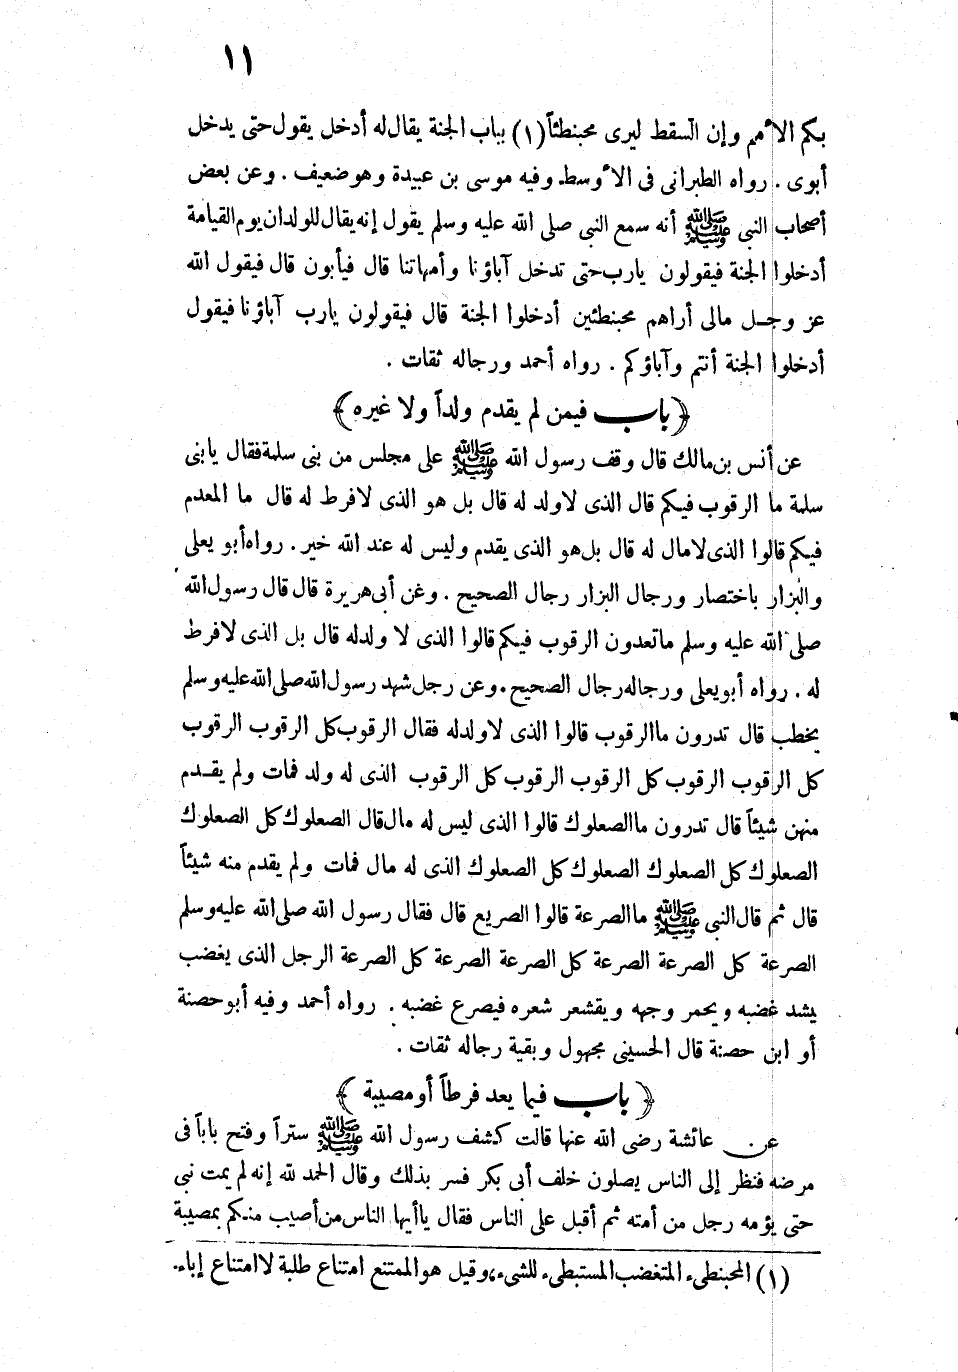 ١١
بكم الأمم وإن السقط ليرى محبنطئاً (١) بباب الجنة يقال له أدخل يقول حتى يدخل
أبوى . رواه الطبرانى فى الأوسط وفيه موسى بن عبيدة وهو ضعيف . وعن بعض
أصحاب النبى ﷺ أنه سمع النبى صلى الله عليه وسلم يقول إنه يقال للولدان يوم القيامة
أدخلوا الجنة فيقولون يارب حتى تدخل آباؤنا وأمهاتنا قال فيأبون قال فيقول الله
عز وجل مالى أراهم محبنطئين أدخلوا الجنة قال فيقولون يارب آباؤنا فيقول
أدخلوا الجنة أنتم وآباؤكم . رواه أحمد ورجاله ثقات .
﴿ باب فيمن لم يقدم ولداً ولا غيره ﴾
عن أنس بن مالك قال وقف رسول الله ﷺ على مجلس من بنى سلمة فقال يابنى
سلمة ما الرقوب فيكم قال الذى لا ولد له قال بل هو الذى لا فرط له قال ما المعدم
فيكم قالوا الذى لا مال له قال بل هو الذى يقدم وليس له عند الله خير . رواه أبو يعلى
والبزار باختصار ورجال البزار رجال الصحيح . وعن أبى هريرة قال قال رسول الله
صلى الله عليه وسلم ما تعدون الرقوب فيكم قالوا الذى لا ولد له قال بل الذى لا فرط
له . رواه أبو يعلى ورجاله رجال الصحيح . وعن رجل شهد رسول الله صلى الله عليه وسلم
يخطب قال تدرون ما الرقوب قالوا الذى لا ولد له فقال الرقوب كل الرقوب الرقوب
كل الرقوب الرقوب كل الرقوب الرقوب كل الرقوب الذى له ولد فمات ولم يقدم
منهن شيئاً قال تدرون ما الصعلوك قالوا الذى ليس له مال قال الصعلوك كل الصعلوك
الصعلوك كل الصعلوك الصعلوك كل الصعلوك الذى له مال فمات ولم يقدم منه شيئاً
قال ثم قال النبى ﷺ ما الصرعة قالوا الصريع قال فقال رسول الله صلى الله عليه وسلم
الصرعة كل الصرعة الصرعة كل الصرعة الصرعة كل الصرعة الرجل الذى يغضب
يشد غضبه ويحمر وجهه ويقشعر شعره فيصرع غضبه . رواه أحمد وفيه أبو حصنة
أو ابن حصنة قال الحسينى مجهول وبقية رجاله ثقات .
﴿ باب فيما يعد فرطاً أو مصيبة ﴾
عن عائشة رضى الله عنها قالت كشف رسول الله ﷺ ستراً وفتح باباً فى
مرضه فنظر إلى الناس يصلون خلف أبى بكر فسر بذلك وقال الحمد لله إنه لم يمت نبى
حتى يؤمه رجل من أمته ثم أقبل على الناس فقال يا أيها الناس من أصيب منكم بمصيبة
(١) المحبنطىء المتغضب المستبطىء للشىء، وقيل هو الممتنع امتناع طلبة لا امتناع إباء.